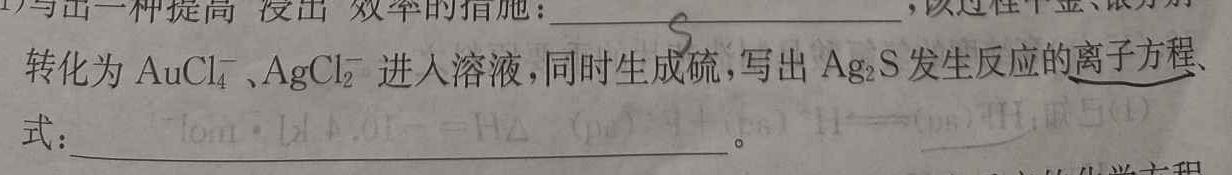 写出一种提高"浸出"效率的措施:____________,该过程中金、银分别
S
转化为 AuCl₄⁻、AgCl₂⁻ 进入溶液,同时生成硫,写出 Ag₂S 发生反应的离子方程
式:____________。